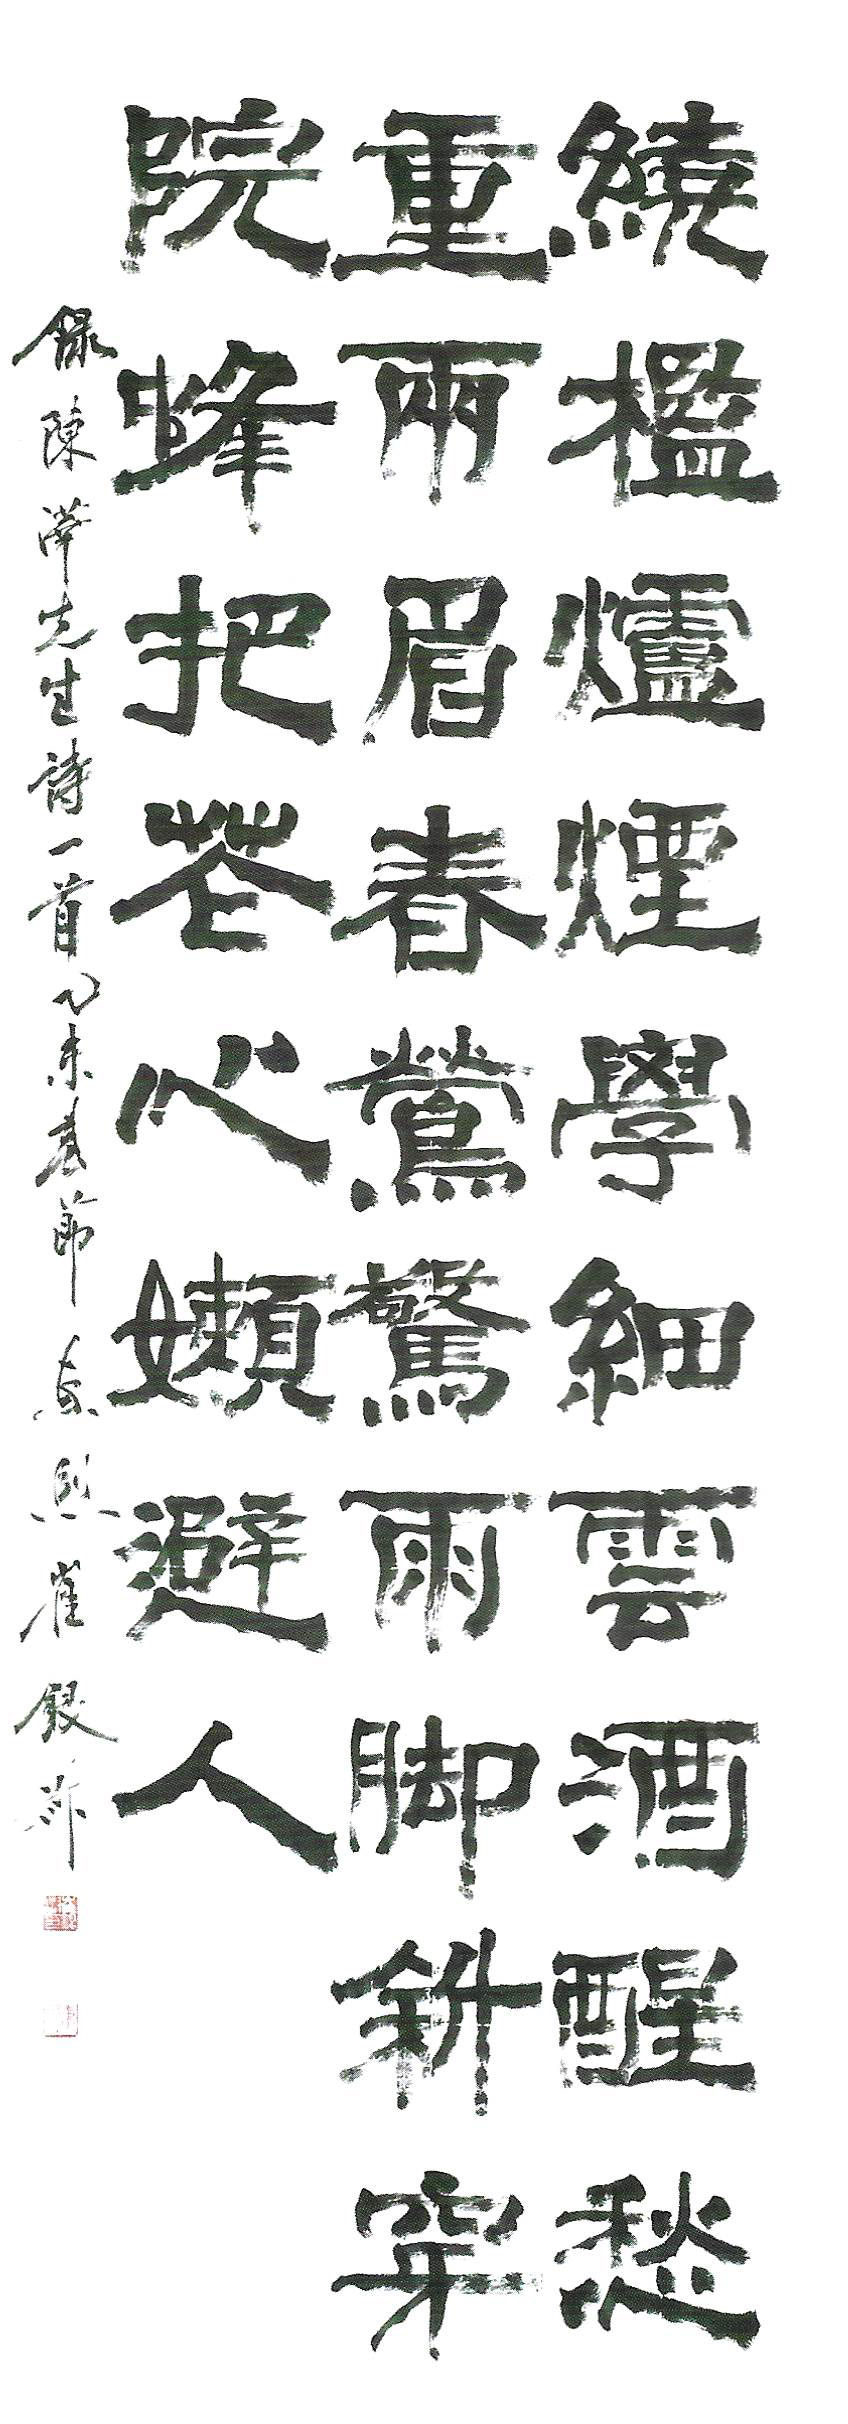 繞檻爐煙學細雲酒醒愁
重兩眉春鶯驚雨脚斜穿
院蜂把花心嬾避人
錄陳澕先生詩一首乙未春節 熙 崔銀